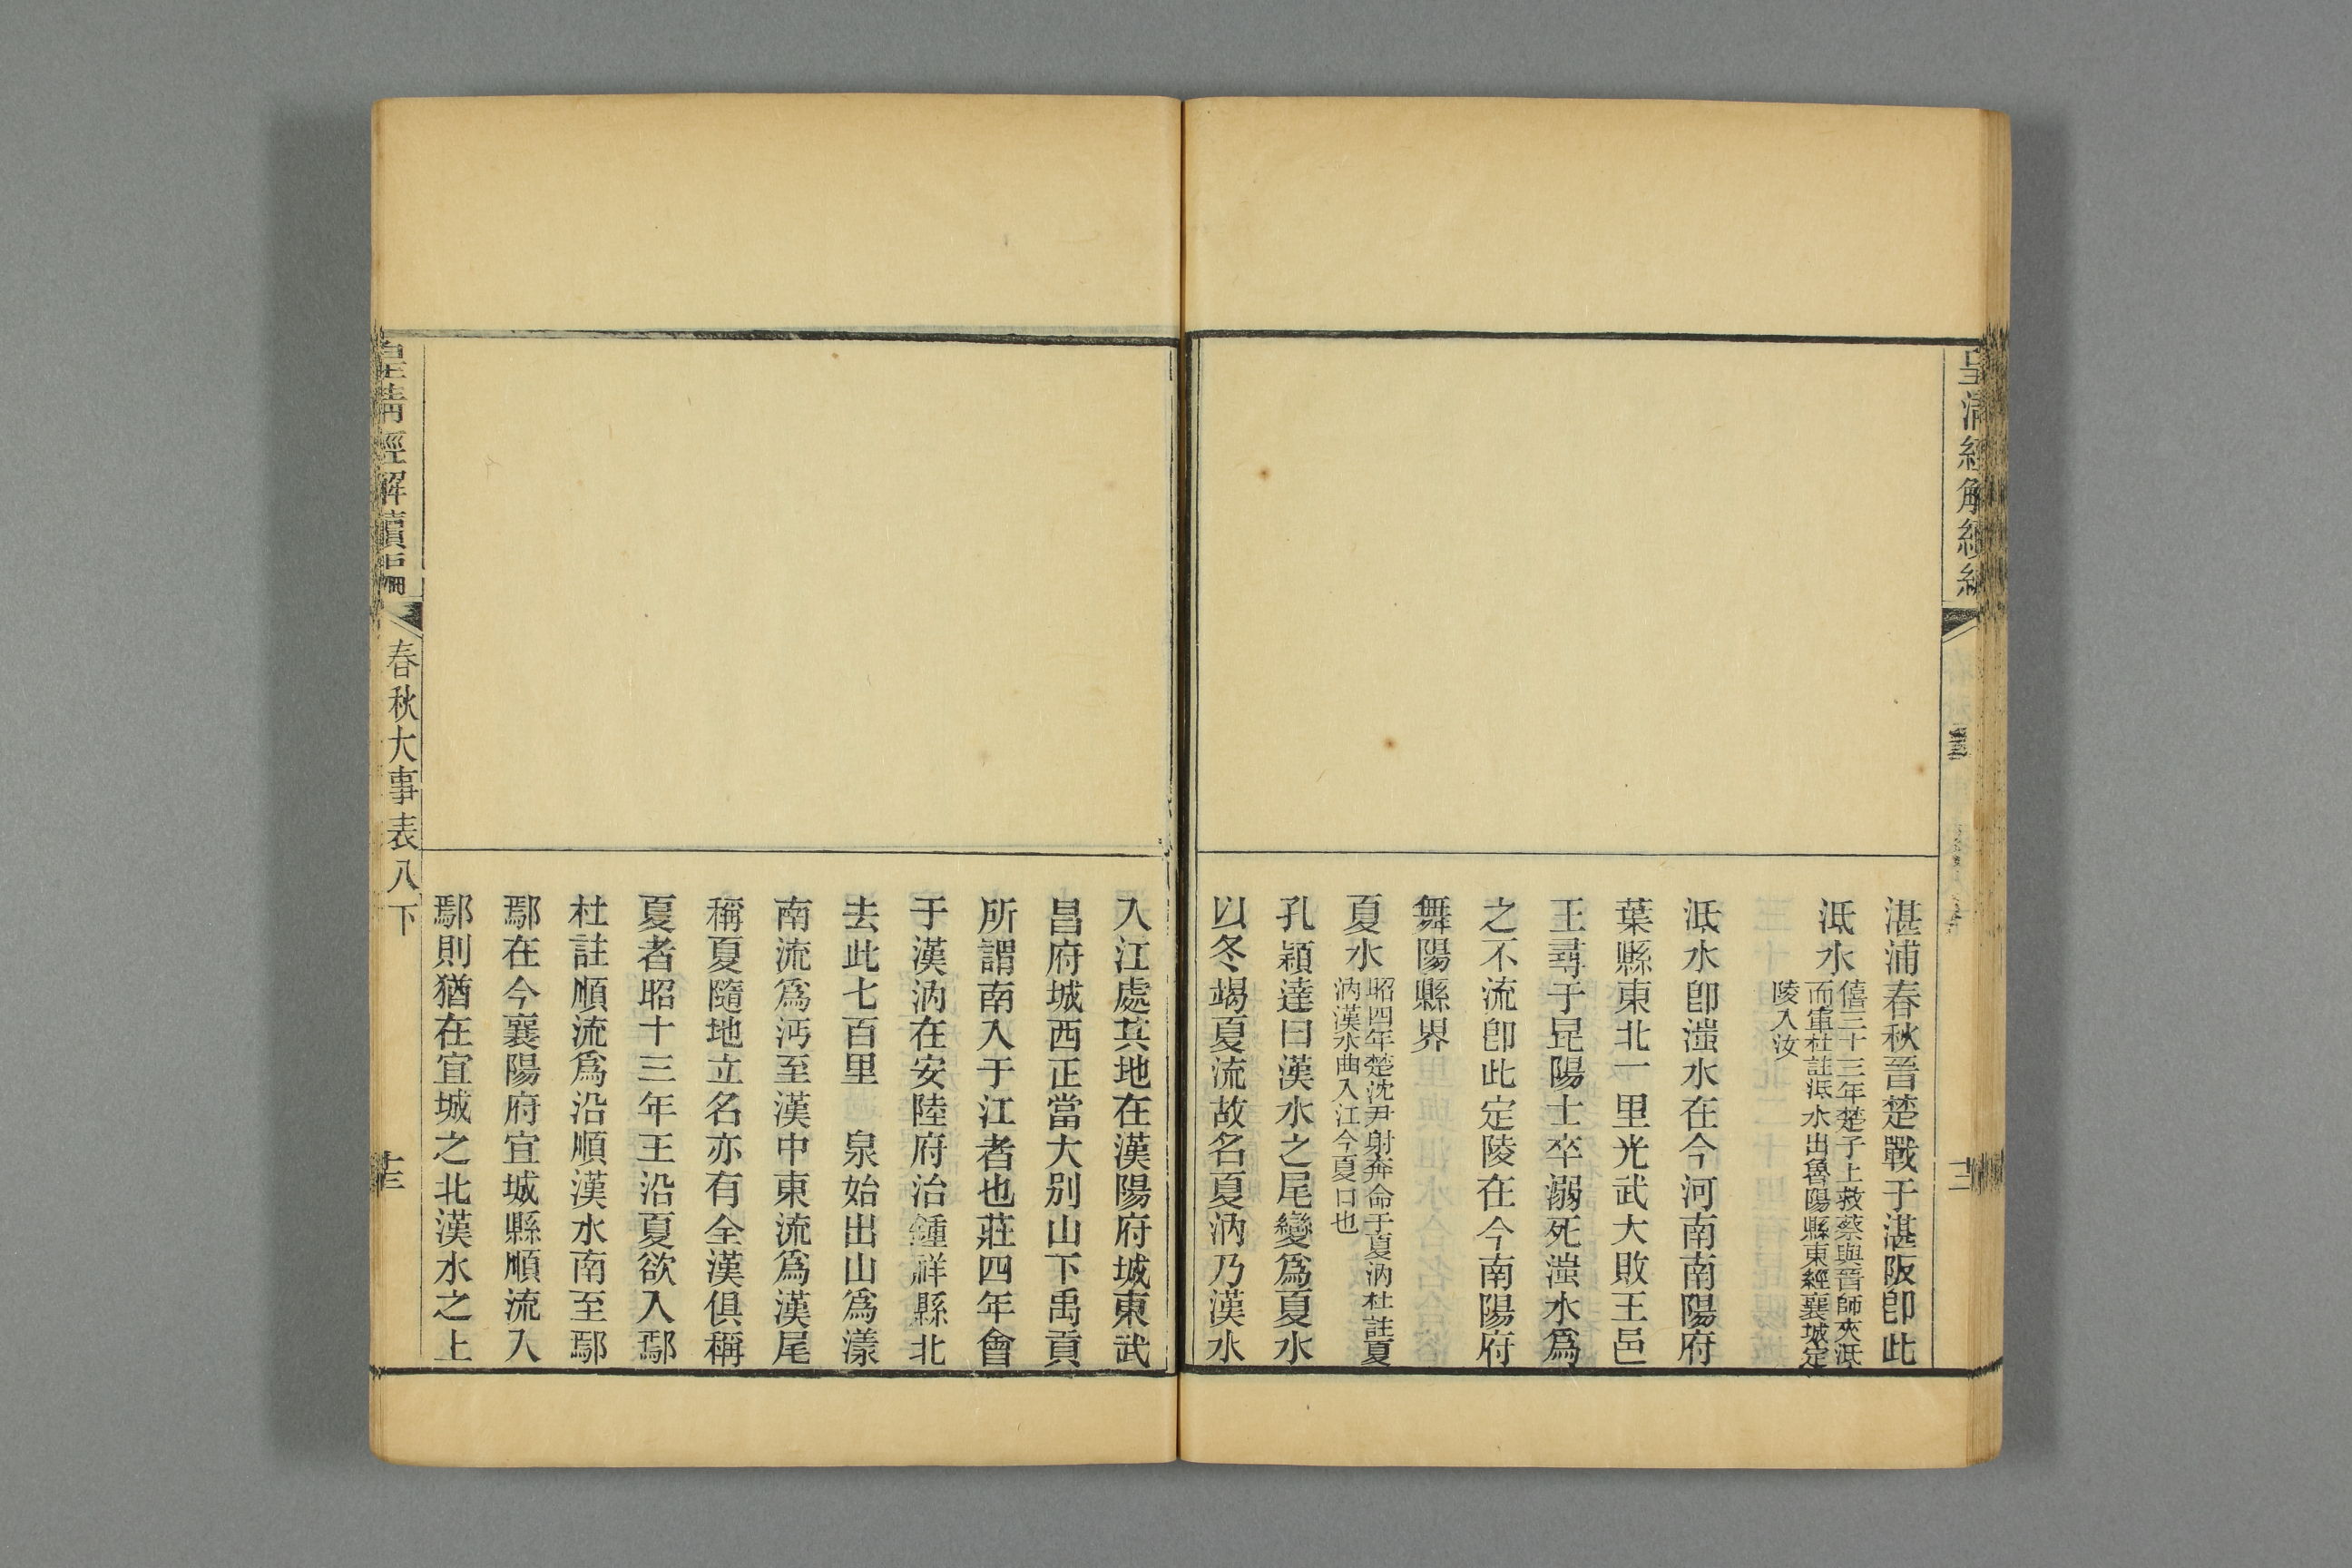 湛浦春秋晉楚戰于湛阪卽此
泜水
僖三十三年楚子上救蔡與晉師夾泜
而軍杜註泜水出魯陽縣東經襄城定
陵入汝
泜水卽滍水在今河南南陽府
葉縣東北一里光武大敗王邑
王尋于昆陽士卒溺死滍水爲
之不流卽此定陵在今南陽府
舞陽縣界
夏水
昭四年楚沈尹射奔命于夏汭杜註夏
汭漢水曲入江今夏口也
孔穎達曰漢水之尾變爲夏水
以冬竭夏流故名夏汭乃漢水
入江處其地在漢陽府城東武
昌府城西正當大別山下禹貢
所謂南入于江者也莊四年會
于漢汭在安陸府治鍾祥縣北
去此七百里 泉始出山爲漾
南流爲沔至漢中東流爲漢尾
稱夏隨地立名亦有全漢俱稱
夏者昭十三年王沿夏欲入鄢
杜註順流爲沿順漢水南至鄢
鄢在今襄陽府宜城縣順流入
鄢則猶在宜城之北漢水之上
皇清經解續編
春秋大事表八下